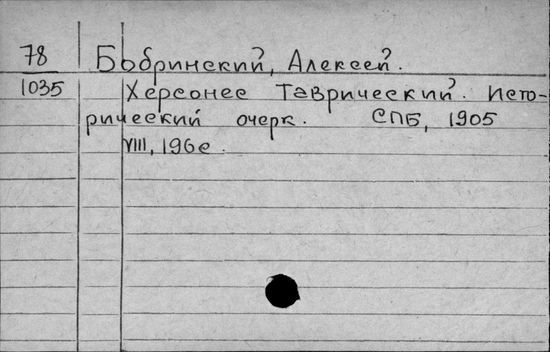 78 Бобринский, Алексей.
1035 Херсонес Таврический. Исто-
рический очерк. СПБ, 1905
VIII, 196 с.